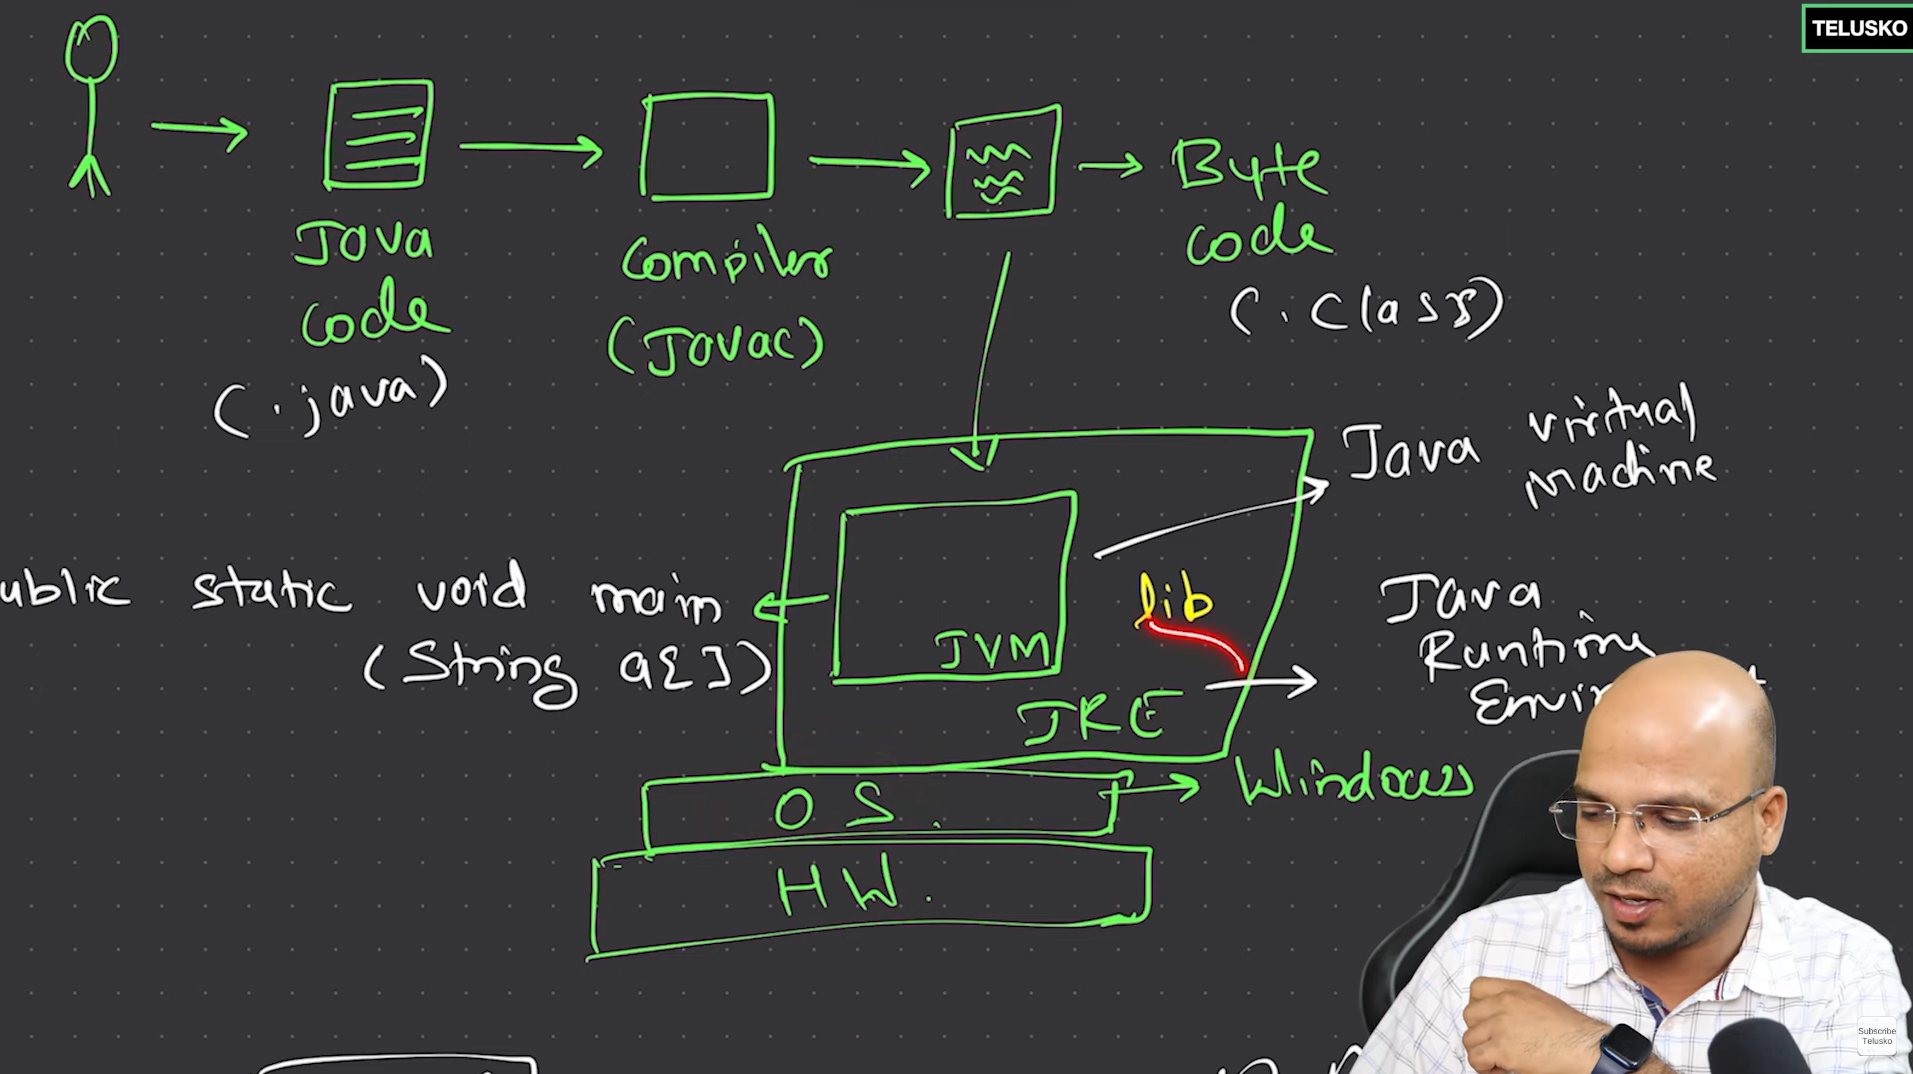 TELUSKO
Java
code
(.java)
Compiler
(Javac)
Byte
code
(.class)
Java virtual
machine
ublic static void main
(String a[])
JVM
lib
JRE
Java
Runtime
OS.
Windows
HW.
Subscribe
Telusko